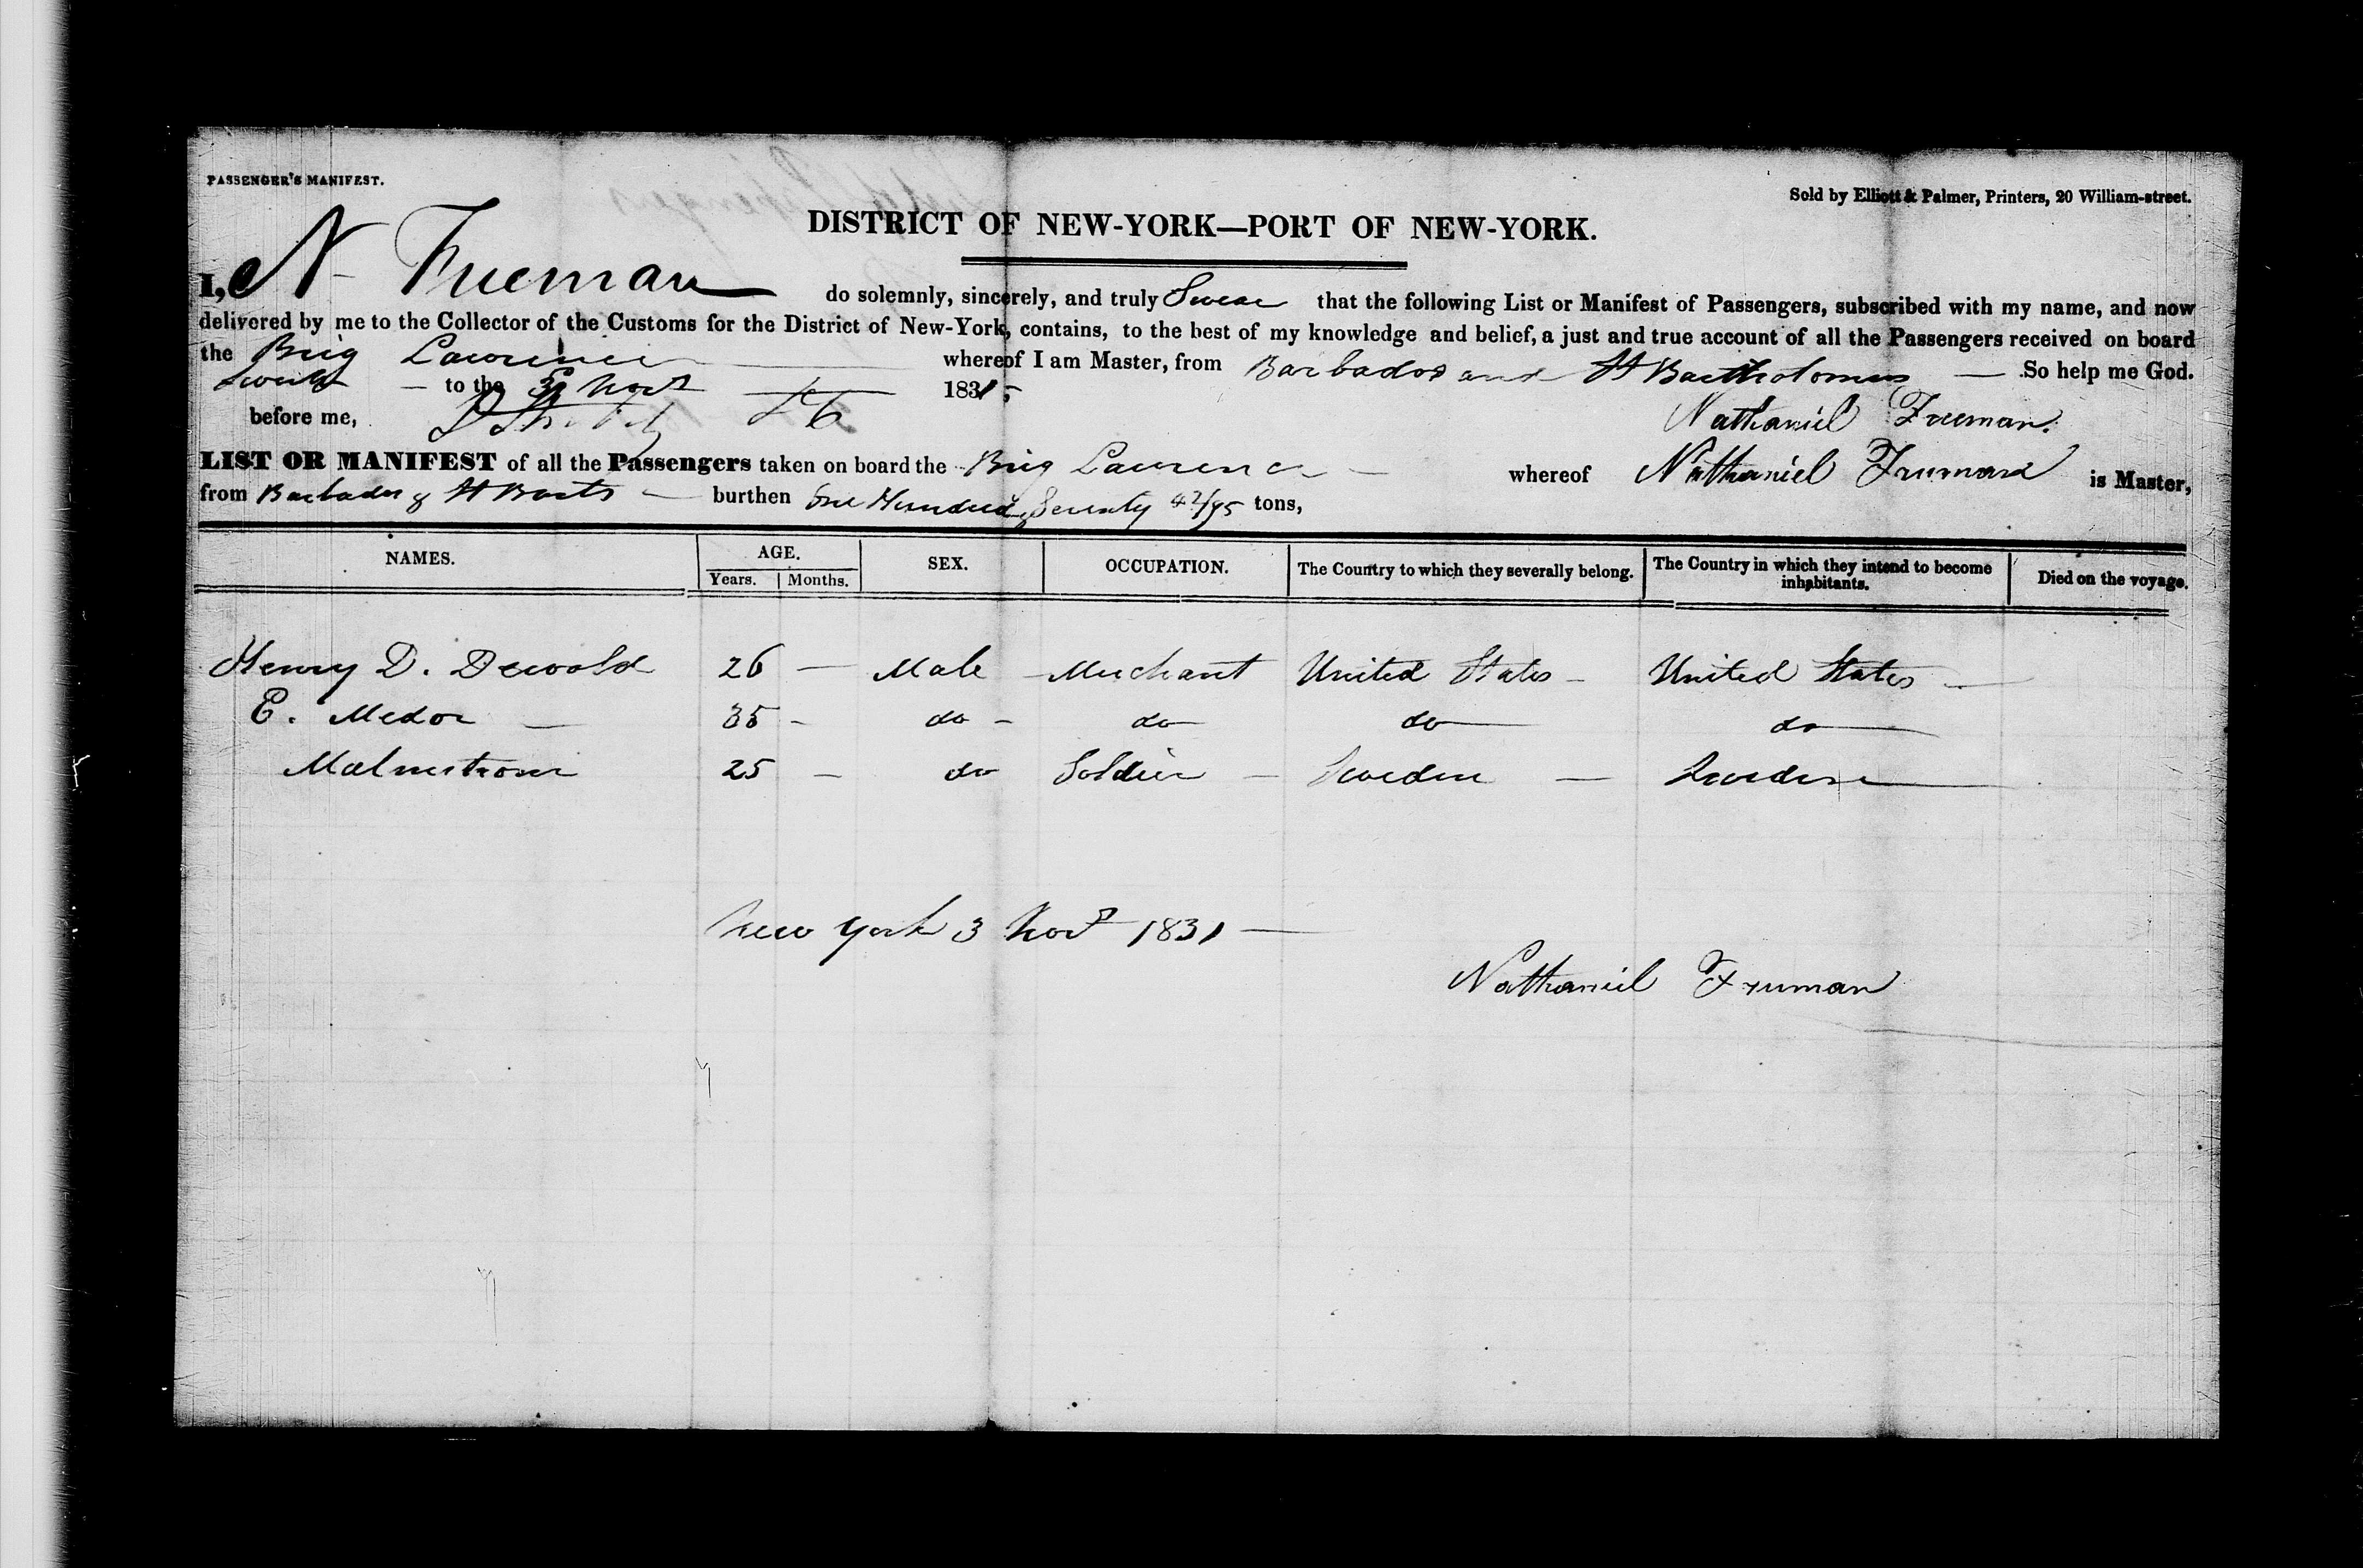 PASSENGER'S MANIFEST.
Sold by Elliott & Palmer, Printers, 20 William-street.
DISTRICT OF NEW-YORK—PORT OF NEW-YORK.
I, N Freeman do solemnly, sincerely, and truly Swear that the following List or Manifest of Passengers, subscribed with my name, and now
delivered by me to the Collector of the Customs for the District of New-York, contains, to the best of my knowledge and belief, a just and true account of all the Passengers received on board
the Brig Lawrence whereof I am Master, from Barbados and St Bartholomews So help me God.
Sworn to the 3d Nov 1831
before me, Nathaniel Freeman.
LIST OR MANIFEST of all the Passengers taken on board the Brig Lawrence whereof Nathaniel Freeman is Master,
from Barbados & St Barts burthen One Hundred & Seventy 42/95 tons,
NAMES. AGE. SEX. OCCUPATION. The Country to which they severally belong. The Country in which they intend to become inhabitants. Died on the voyage.
Years. Months.
Henry D. Dewold 26 — Male Merchant United States — United States —
E. Medor — 35 — do — do do do
Malmstrom 25 — do Soldier — Sweden — Sweden
New York 3 Nov 1831 —
Nathaniel Freeman